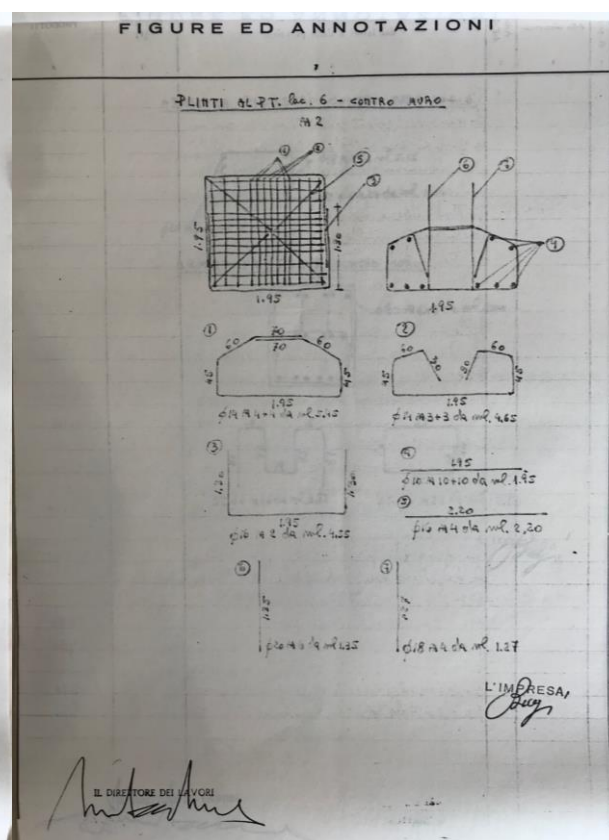 FIGURE ED ANNOTAZIONI
PLINTI AL PT. loc. 6 - CONTRO MURO
N 2
1 2 5
3
1.95
1.30
1.95
6 7
4
1.95
1
70
60 70 60
45 45
1.95
4+4 da ml. 5.45
2
60 60
30 30
45 45
1.95
ϕ14 N 3+3 da ml. 4.65
3
1.95
ϕ16 N 2 da ml.
4
1.95
ϕ10 N 10+10 da ml. 1.95
5
2.20
ϕ16 N 4 da ml. 2,20
6
1.35
da ml 1.35
7
1.27
ϕ18 N 4 da ml. 1.27
L'IMPRESA,
IL DIRETTORE DEI LAVORI